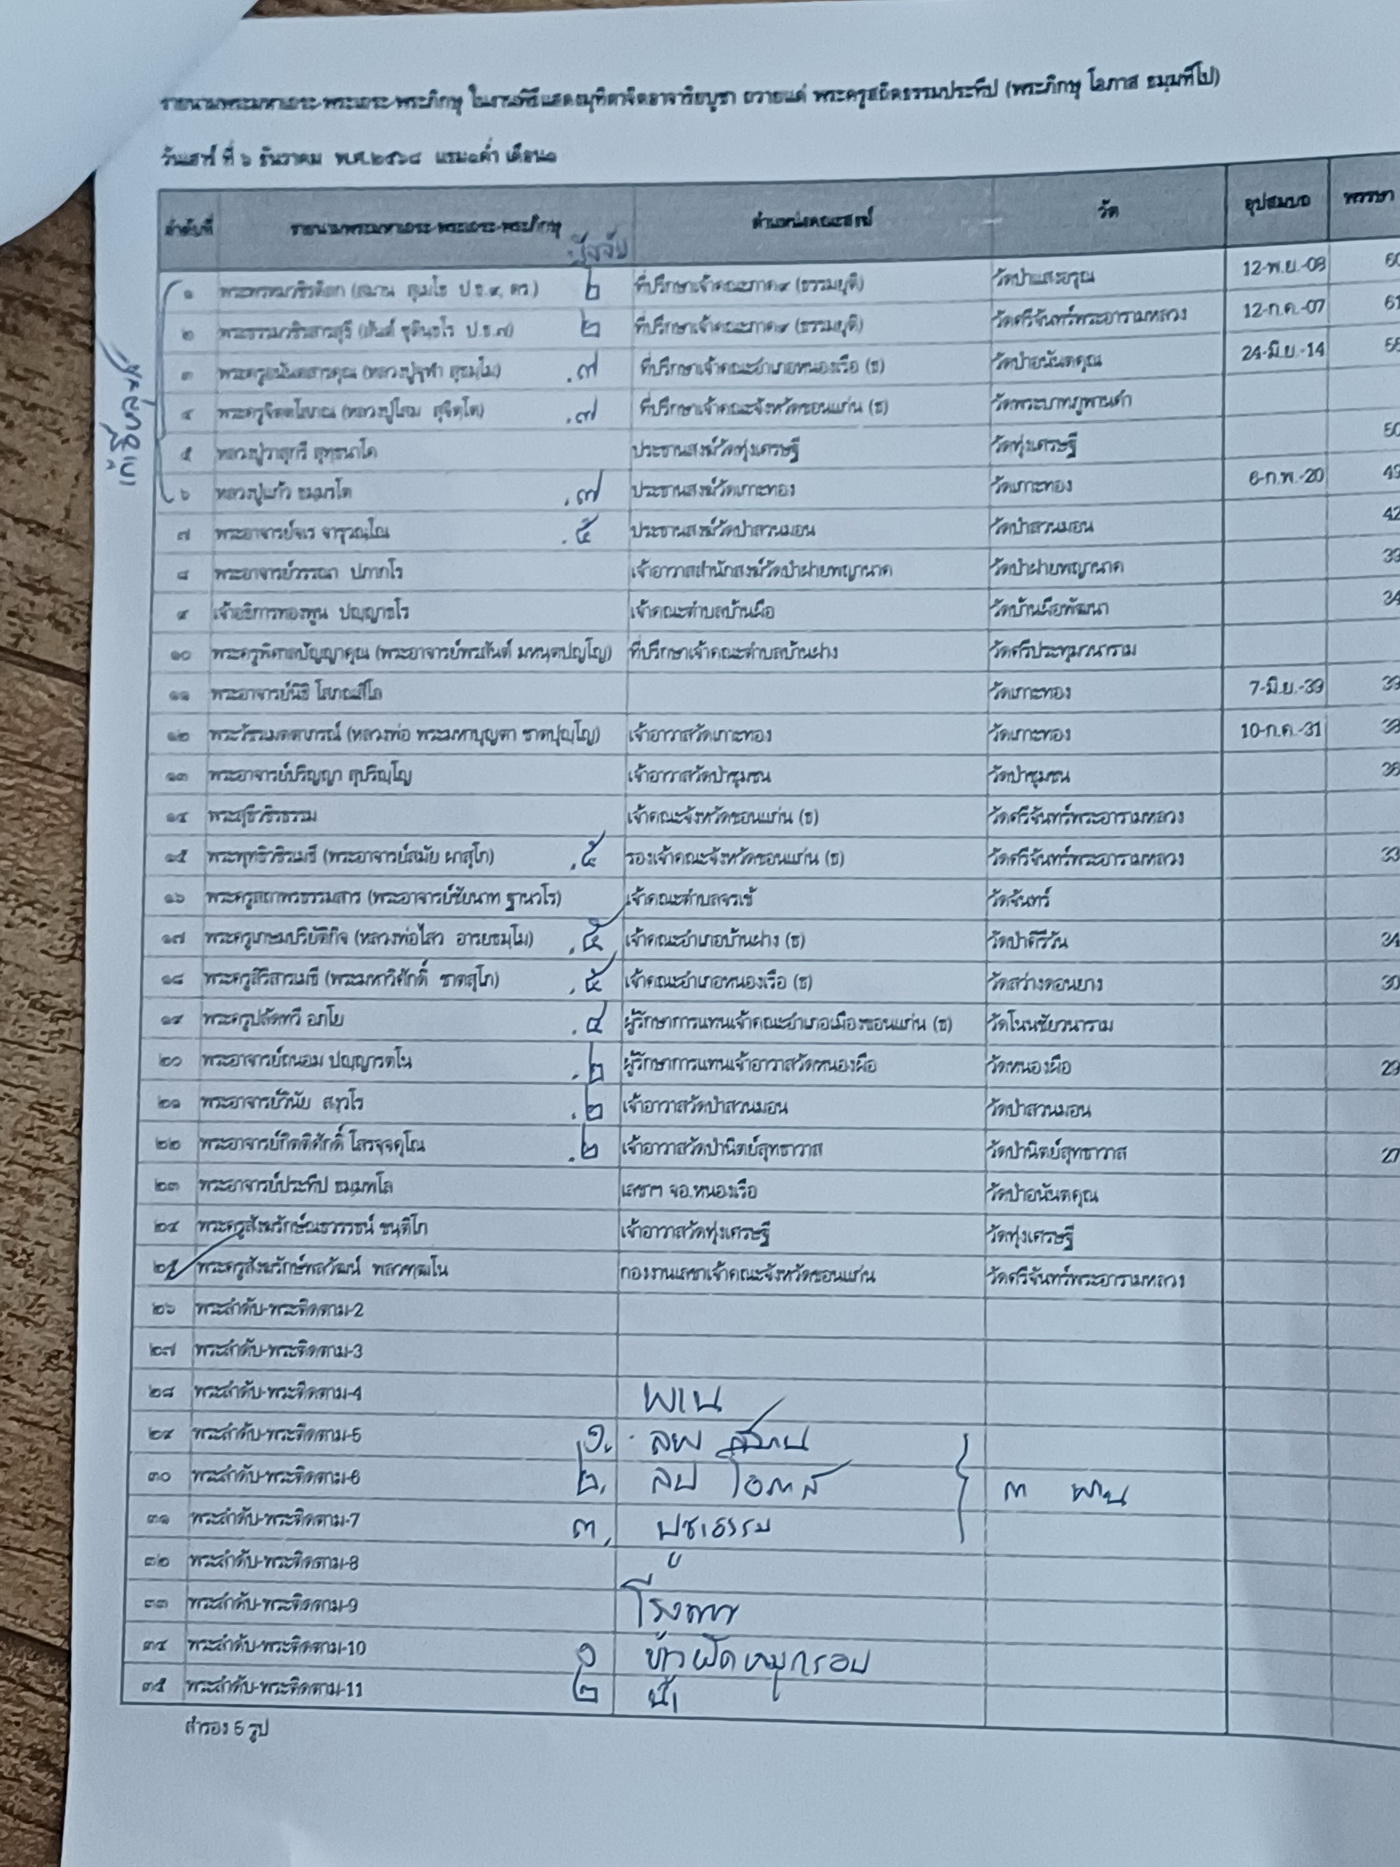 รายนามพระมหาเถระ-พระเถระ-พระภิกษุ ในงานพิธีแสดงมุทิตาจิตอาจาริยบูชา ถวายแด่ พระครูสถิตธรรมประทีป (พระภิกษุ โอภาส ธมฺมทีโป)
วันเสาร์ ที่ ๖ ธันวาคม พ.ศ.๒๕๖๘ แรม๑ค่ำ เดือน๑
ลำดับที่ รายนามพระมหาเถระ-พระเถระ-พระภิกษุ ตำแหน่งคณะสงฆ์ วัด อุปสมบถ พรรษา
ปัจจัย
๑ (สมาน สุเมโธ ป.ธ.๙, ดร.) ๒ ที่ปรึกษาเจ้าคณะภาค๙ (ธรรมยุติ) วัดป่าแสงอรุณ 12-พ.ย.-08 60
๒ ๒ ที่ปรึกษาเจ้าคณะภาค๙ (ธรรมยุติ) วัดศรีจันทร์พระอารามหลวง 12-ก.ค.-07 61
๓ พระครูอนันตสารคุณ (หลวงปู่จูฬา สุธมฺโม) .๗ ที่ปรึกษาเจ้าคณะอำเภอหนองเรือ (ธ) วัดป่าอนันตคุณ 24-มิ.ย.-14 55
๔ พระครูจิตตโสภณ (หลวงปู่โสม สุจิตฺโต) .๗ ที่ปรึกษาเจ้าคณะจังหวัดขอนแก่น (ธ) วัดพระบาทภูพานคำ
๕ หลวงปู่วาสุกรี สุทฺธนาโค ประธานสงฆ์วัดทุ่งเศรษฐี วัดทุ่งเศรษฐี 50
๖ หลวงปู่แก้ว ธมฺมวโต .๗ ประธานสงฆ์วัดเกาะทอง วัดเกาะทอง 6-ก.พ.-20 49
๗ พระอาจารย์จเร จารุวณฺโณ .๕ ประธานสงฆ์วัดป่าสวนมอน วัดป่าสวนมอน 42
๘ พระอาจารย์วรรณา ปภากโร เจ้าอาวาสสำนักสงฆ์วัดป่าฝายพญานาค วัดป่าฝายพญานาค 39
๙ เจ้าอธิการทองพูน ปญฺญาธโร เจ้าคณะตำบลบ้านผือ วัดบ้านผือพัฒนา 34
๑๐ พระครูพิศาลปัญญาคุณ (พระอาจารย์พรสันต์ มหนฺตปญฺโญ) ที่ปรึกษาเจ้าคณะตำบลบ้านฝาง วัดศรีประทุมวนาราม
๑๑ พระอาจารย์นิธิ โสภณสีโล วัดเกาะทอง 7-มิ.ย.-39 39
๑๒ (หลวงพ่อ พระมหาบุญตา ชาตปุญฺโญ) เจ้าอาวาสวัดเกาะทอง วัดเกาะทอง 10-ก.ค.-31 38
๑๓ พระอาจารย์ปริญญา สุปริญฺโญ เจ้าอาวาสวัดป่าชุมชน วัดป่าชุมชน 36
๑๔ พระสุธีวชิรธรรม เจ้าคณะจังหวัดขอนแก่น (ธ) วัดศรีจันทร์พระอารามหลวง
๑๕ พระพุทธิวชิรเมธี (พระอาจารย์สมัย ผาสุโก) .๕ รองเจ้าคณะจังหวัดขอนแก่น (ธ) วัดศรีจันทร์พระอารามหลวง 33
๑๖ พระครูสถาพรธรรมสาร (พระอาจารย์ชัยนาท ฐานวโร) เจ้าคณะตำบลจระเข้ วัดจันทร์
๑๗ พระครูเกษมปริยัติกิจ (หลวงพ่อไสว อารยธมฺโม) .๕ เจ้าคณะอำเภอบ้านฝาง (ธ) วัดป่าคีรีวัน 34
๑๘ พระครูสิริสารเมธี (พระมหาวิศักดิ์ ชาตสุโภ) .๕ เจ้าคณะอำเภอหนองเรือ (ธ) วัดสว่างดอนยาง 30
๑๙ พระครูปลัดทวี อภโย .๔ ผู้รักษาการแทนเจ้าคณะอำเภอเมืองขอนแก่น (ธ) วัดโนนชัยวนาราม
๒๐ พระอาจารย์ถนอม ปญฺญารตโน .๒ ผู้รักษาการแทนเจ้าอาวาสวัดหนองผือ วัดหนองผือ 29
๒๑ พระอาจารย์วินัย สํวโร .๒ เจ้าอาวาสวัดป่าสวนมอน วัดป่าสวนมอน
๒๒ พระอาจารย์กิตติศักดิ์ โสรจฺจคุโณ .๒ เจ้าอาวาสวัดป่านิตย์สุทธาวาส วัดป่านิตย์สุทธาวาส 27
๒๓ พระอาจารย์ประทีป ธมฺมพโล เลขาฯ จอ.หนองเรือ วัดป่าอนันตคุณ
๒๔ พระครูสังฆรักษ์ณธวรรธน์ ขนฺติโก เจ้าอาวาสวัดทุ่งเศรษฐี วัดทุ่งเศรษฐี
๒๕ พระครูสังฆรักษ์พลวัฒน์ พลวฑฺฒโน กองงานเลขาเจ้าคณะจังหวัดขอนแก่น วัดศรีจันทร์พระอารามหลวง
๒๖ พระลำดับ-พระติดตาม-2
๒๗ พระลำดับ-พระติดตาม-3
๒๘ พระลำดับ-พระติดตาม-4 พาน
๒๙ พระลำดับ-พระติดตาม-5 ๑. ลพ สมาน
๓๐ พระลำดับ-พระติดตาม-6 ๒. ลป โอภาส ๓ พาน
๓๑ พระลำดับ-พระติดตาม-7 ๓. บูชาธรรม
๓๒ พระลำดับ-พระติดตาม-8
๓๓ พระลำดับ-พระติดตาม-9 โรงทาน
๓๔ พระลำดับ-พระติดตาม-10 ๑ ข้าวผัดหมูกรอบ
๓๕ พระลำดับ-พระติดตาม-11 ๒ น้ำ
สำรอง 5 รูป